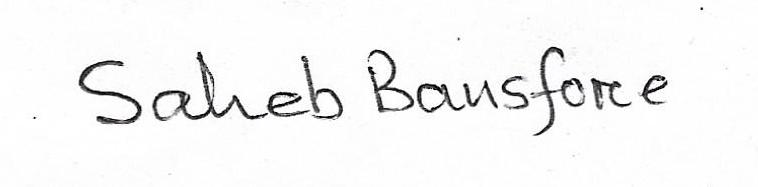 Saheb Bansfore